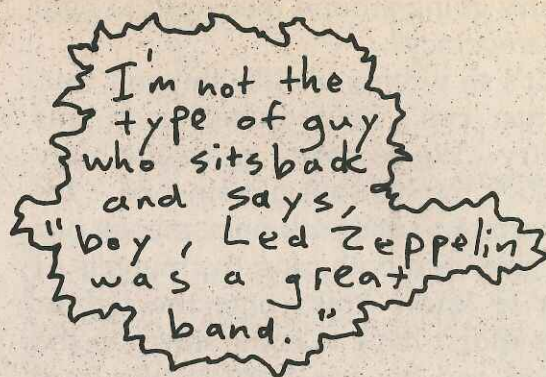 I'm not the
type of guy
who sits back
and says,
"boy, Led Zeppelin
was a great
band."